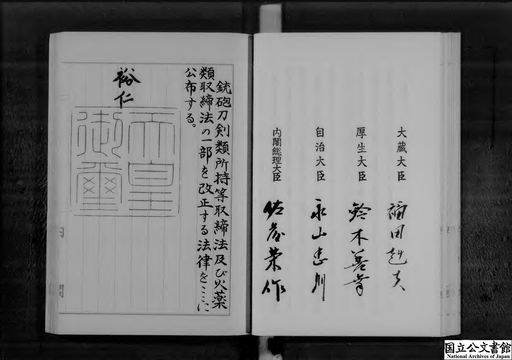 大蔵大臣 福田赳夫
厚生大臣 鈴木善幸
自治大臣 永山忠則
内閣総理大臣 佐藤栄作
銃砲刀剣類所持等取締法及び火薬
類取締法の一部を改正する法律をここに
公布する。
裕仁
天皇
御璽
国立公文書館
National Archives of Japan